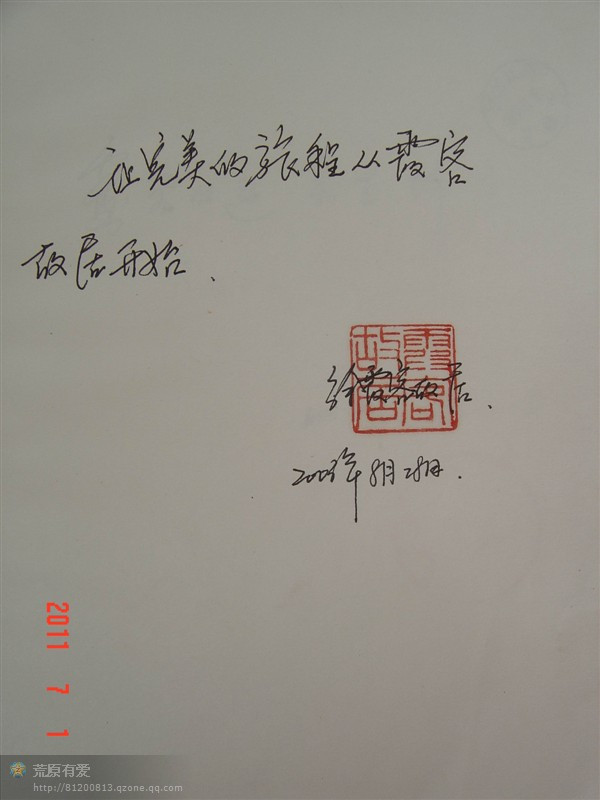 让完美的旅程从霞客
故居开始.
霞客故居
徐霞客故居.
2003年8月28日.
2011 7 1
荒原有爱
http://81200813.qzone.qq.com